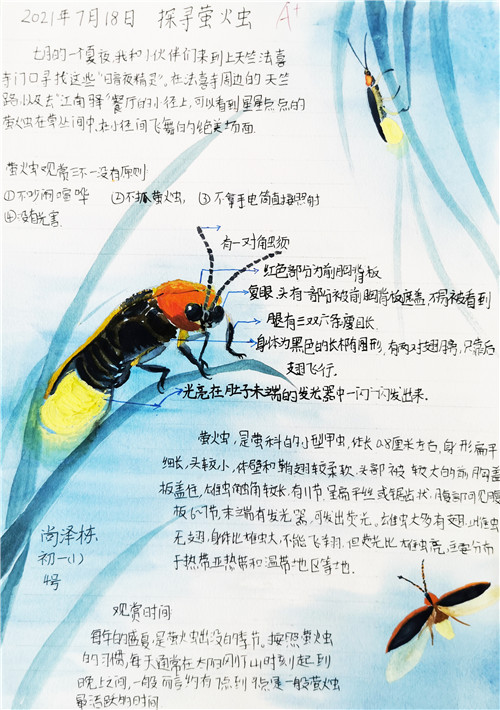 2021年7月18日 探寻萤火虫 A+
七月的一个夏夜,我和小伙伴们来到上天竺法喜
寺门口寻找这些“暗夜精灵”。在法喜寺周边的天竺
路以及去“江南驿”餐厅的小径上,可以看到星星点点的
萤火虫在草丛间中、在小径间飞舞的绝美场面.
萤火虫观赏三不一没有原则
①不吵闹喧哗 ②不抓萤火虫, ③不拿手电筒直接照射
④没有光害.
有一对触须
红色部份为前胸背板
复眼、头有一部分被前胸背板遮盖,不易被看到
腿有三双六条腿且长.
身体为黑色的长椭圆形,有两对翅膀,只靠后
翅飞行.
光亮在肚子末端的发光器中一闪一闪发出来.
萤火虫,是萤科的小型甲虫,体长0.8厘米左右,身形扁平
细长,头较小,体壁和鞘翅较柔软,头部被较大的前胸盖
板盖住,雄虫触角较长,有11节,呈扁平丝或锯齿状,腹部可见腹
板6~7节,末端有发光器,可发出荧光。雄虫大多有翅.雌虫
无翅,身体比雄虫大,不能飞翔,但荧光比雄虫亮,主要分布
于热带亚热带和温带地区等地.
尚泽栋.
初一(1)
4号
观赏时间
每年的盛夏,是萤火虫出没的季节。按照萤火虫
的习惯,每天通常在太阳下山时刻起到
晚上之间,一般而言约有7点到9点是一般萤火虫
最活跃的时间.